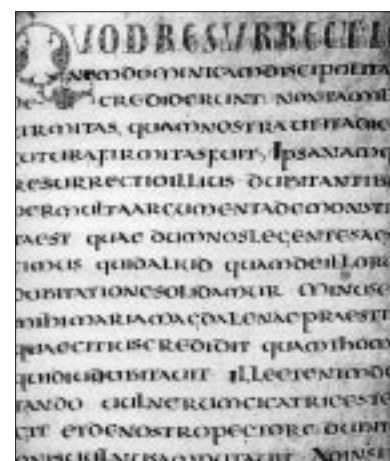 QUOD RESURRECTI
NEM DOMINICAM DISCIPULI TA
DE CREDIDERUNT NON TAM IL
FIRMITAS, QUAM NOSTRA UT ITA DIC
FUTURA FIRMITAS FUIT, IPSA NAMQ
RESURRECTIO ILLIUS DUBITANTIB
PER MULTA ARGUMENTA DEMONSTR
TA EST QUAE DUM NOS LEGENTES AG
CIMUS QUID ALIUD QUAM DE ILLORU
DUBITATIONE SOLIDAMUR MINUS E
MIHI MARIA MAGDALENAE PRAESTI
QUAE CITIUS CREDIDIT QUAM THOM
QUI DIU DUBITAUIT ILLE ETENIM D
TANDO UULNERUM CICATRICES TE
GIT ET DE NOSTRO PECTORE DUBIT
NIS UULNUS AMPUTAUIT